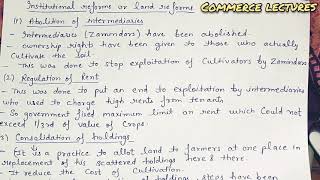 COMMERCE LECTURES
Institutional reforms or land reforms
(1) Abolition of intermediaries
- Intermediaries (Zamindars) have been abolished.
- ownership rights have been given to those who actually
Cultivate the soil
- This was done to stop exploitation of Cultivators by Zamindars
(2) Regulation of Rent
- This was done to put an end to exploitation by intermediaries
who used to charge high rents from tenants
- So government fixed maximum limit on rent which could not
exceed 1/3rd of value of crops.
(3) Consolidation of holdings
- It is a practice to allot land to farmers at one place in
replacement of his scattered holdings here & there.
- It reduce the cost of cultivation.
of holdings, steps have been